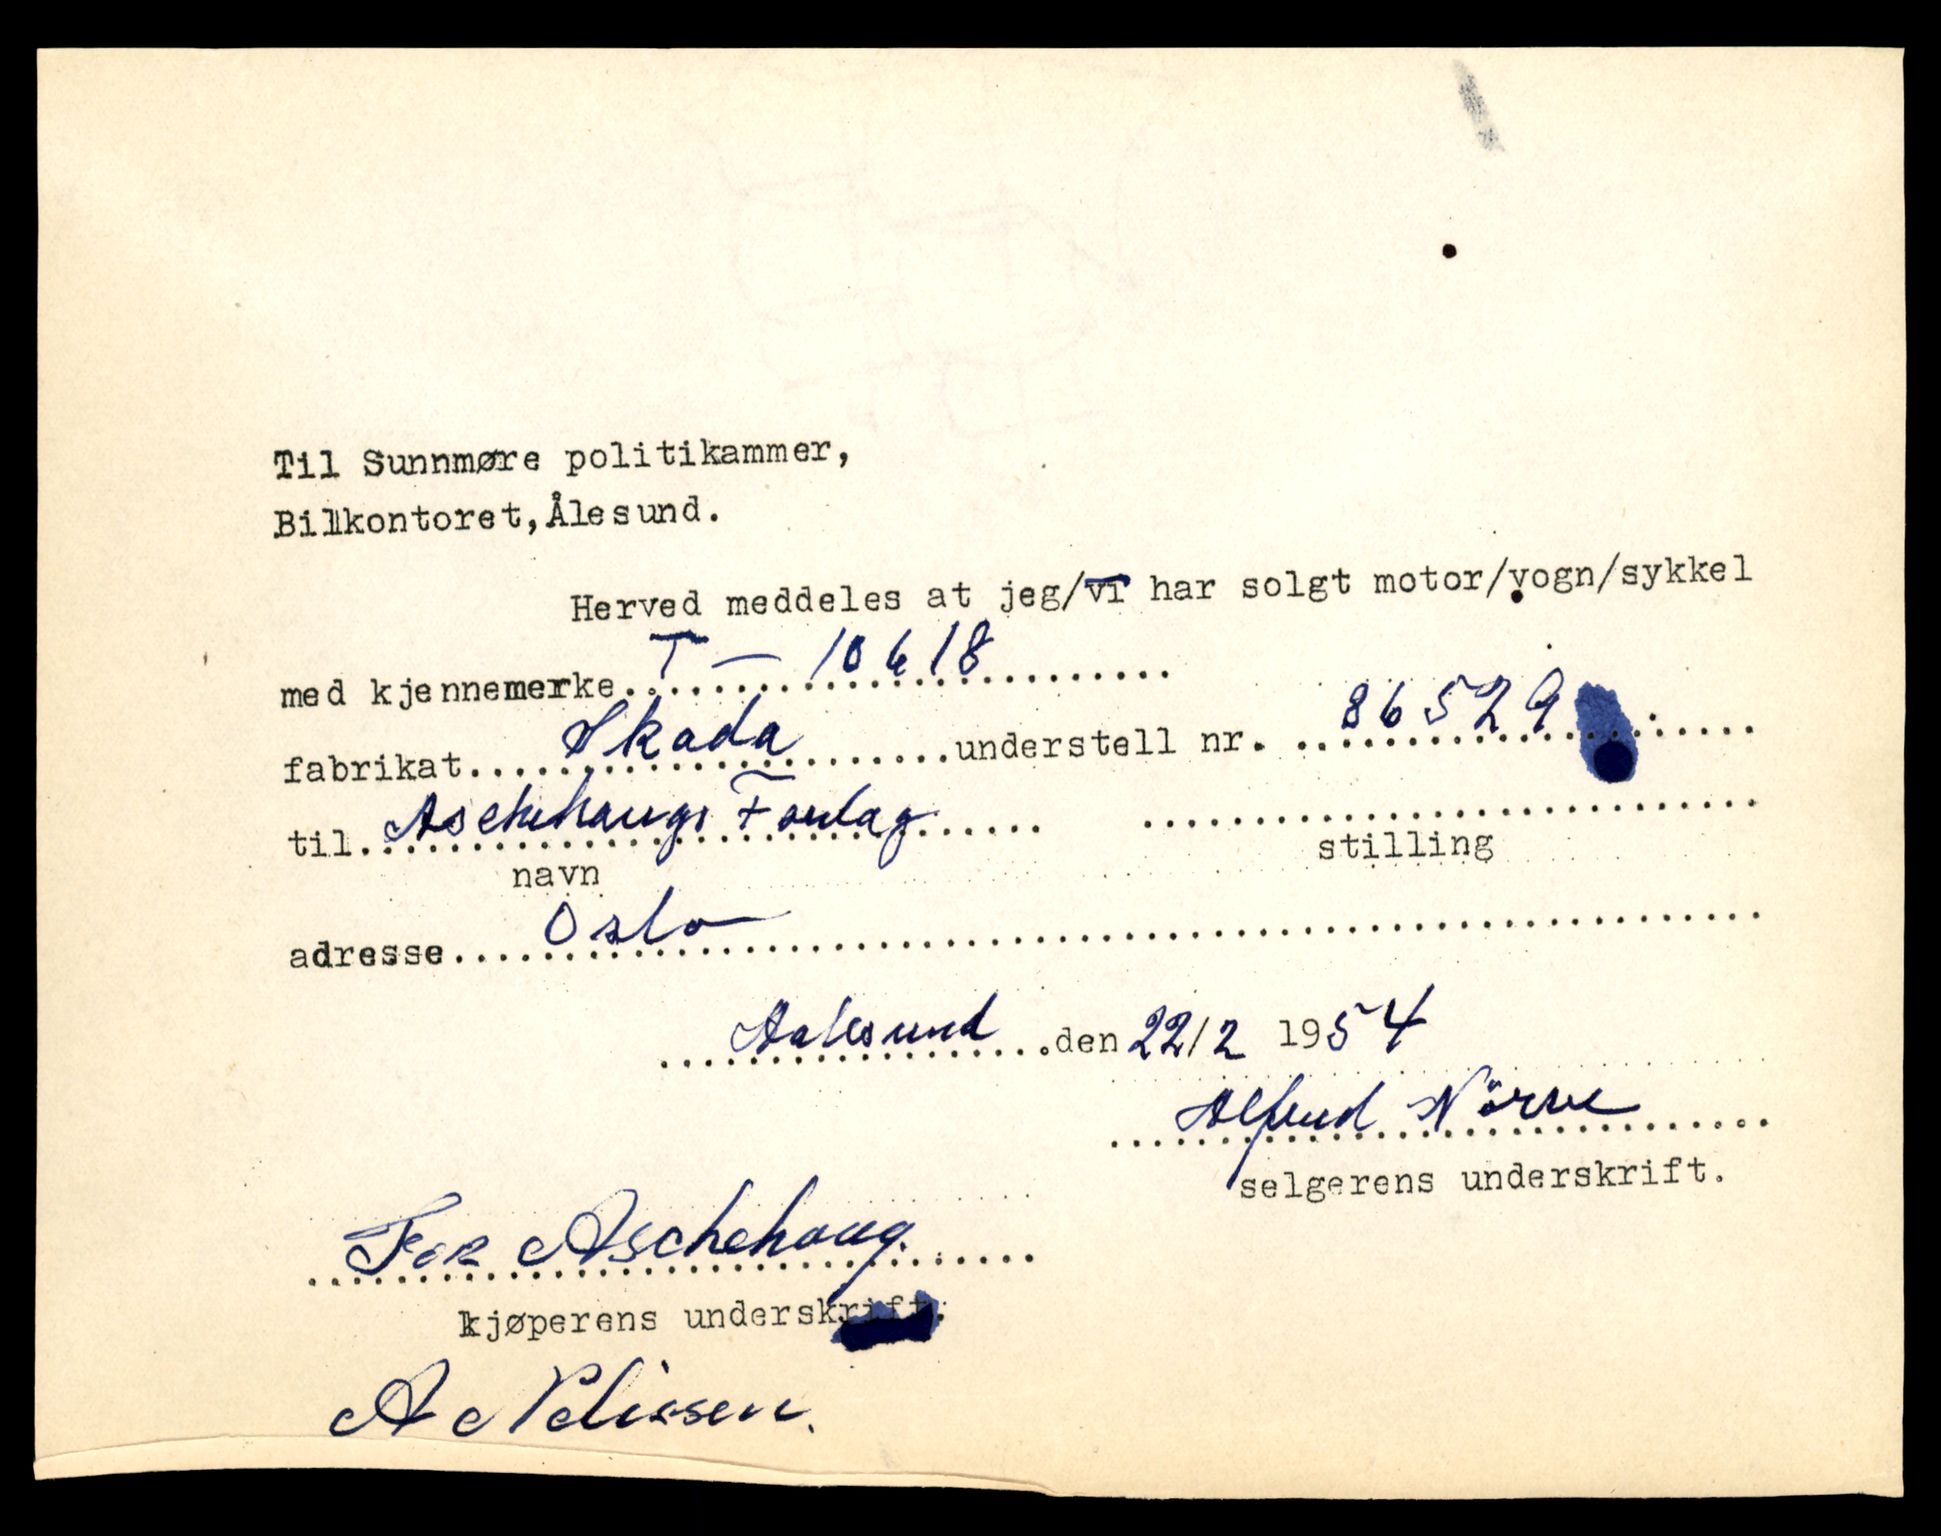 Til Sunnmøre politikammer,
Bilkontoret, Ålesund.
Herved meddeles at jeg/vi har solgt motor/vogn/sykkel
med kjennemerke T - 10618
fabrikat Skada understell nr. 86529
til Aschehaugs Forlag
navn stilling
adresse Oslo
Aalesund den 22/2 1954
Alfred Nörve
selgerens underskrift.
For Aschehoug.
kjøperens underskrift.
A